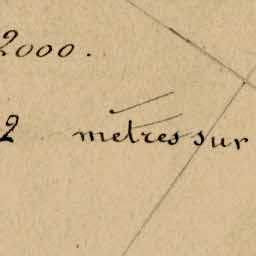 2000.
2 mètres sur